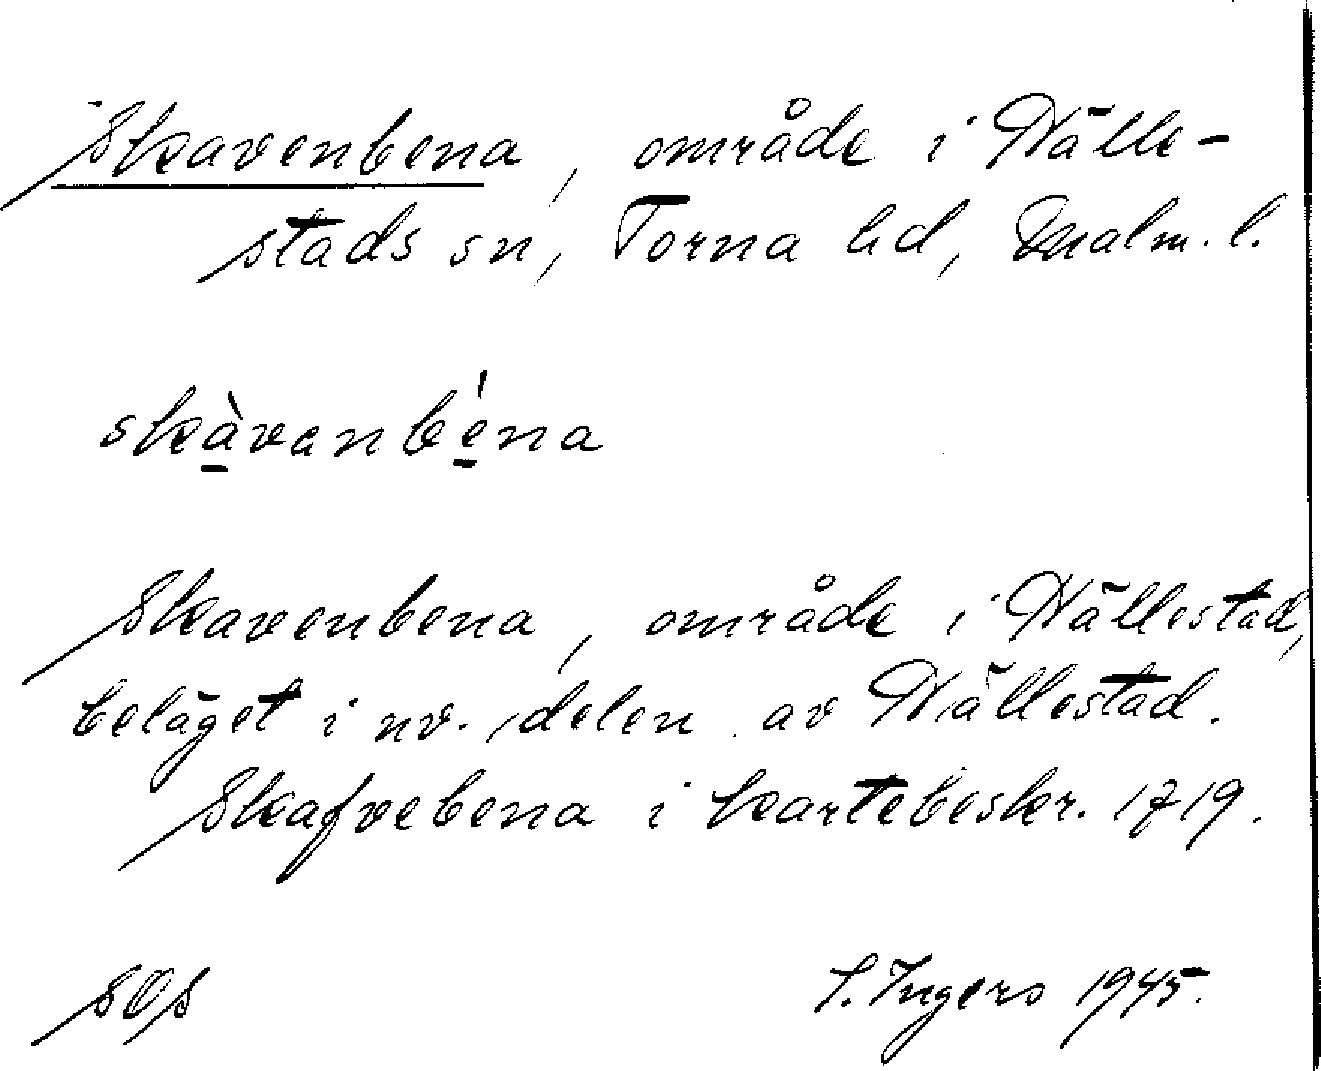 Skavenbena, område i Hälle-
stads sn, Torna hd, Malm. l.
skàvanbéna
Skavenbena, område i Hällestad,
beläget i nv. delen av Hällestad.
Skafvebena i kartebeskr. 1719.
I. Ingers 1945.